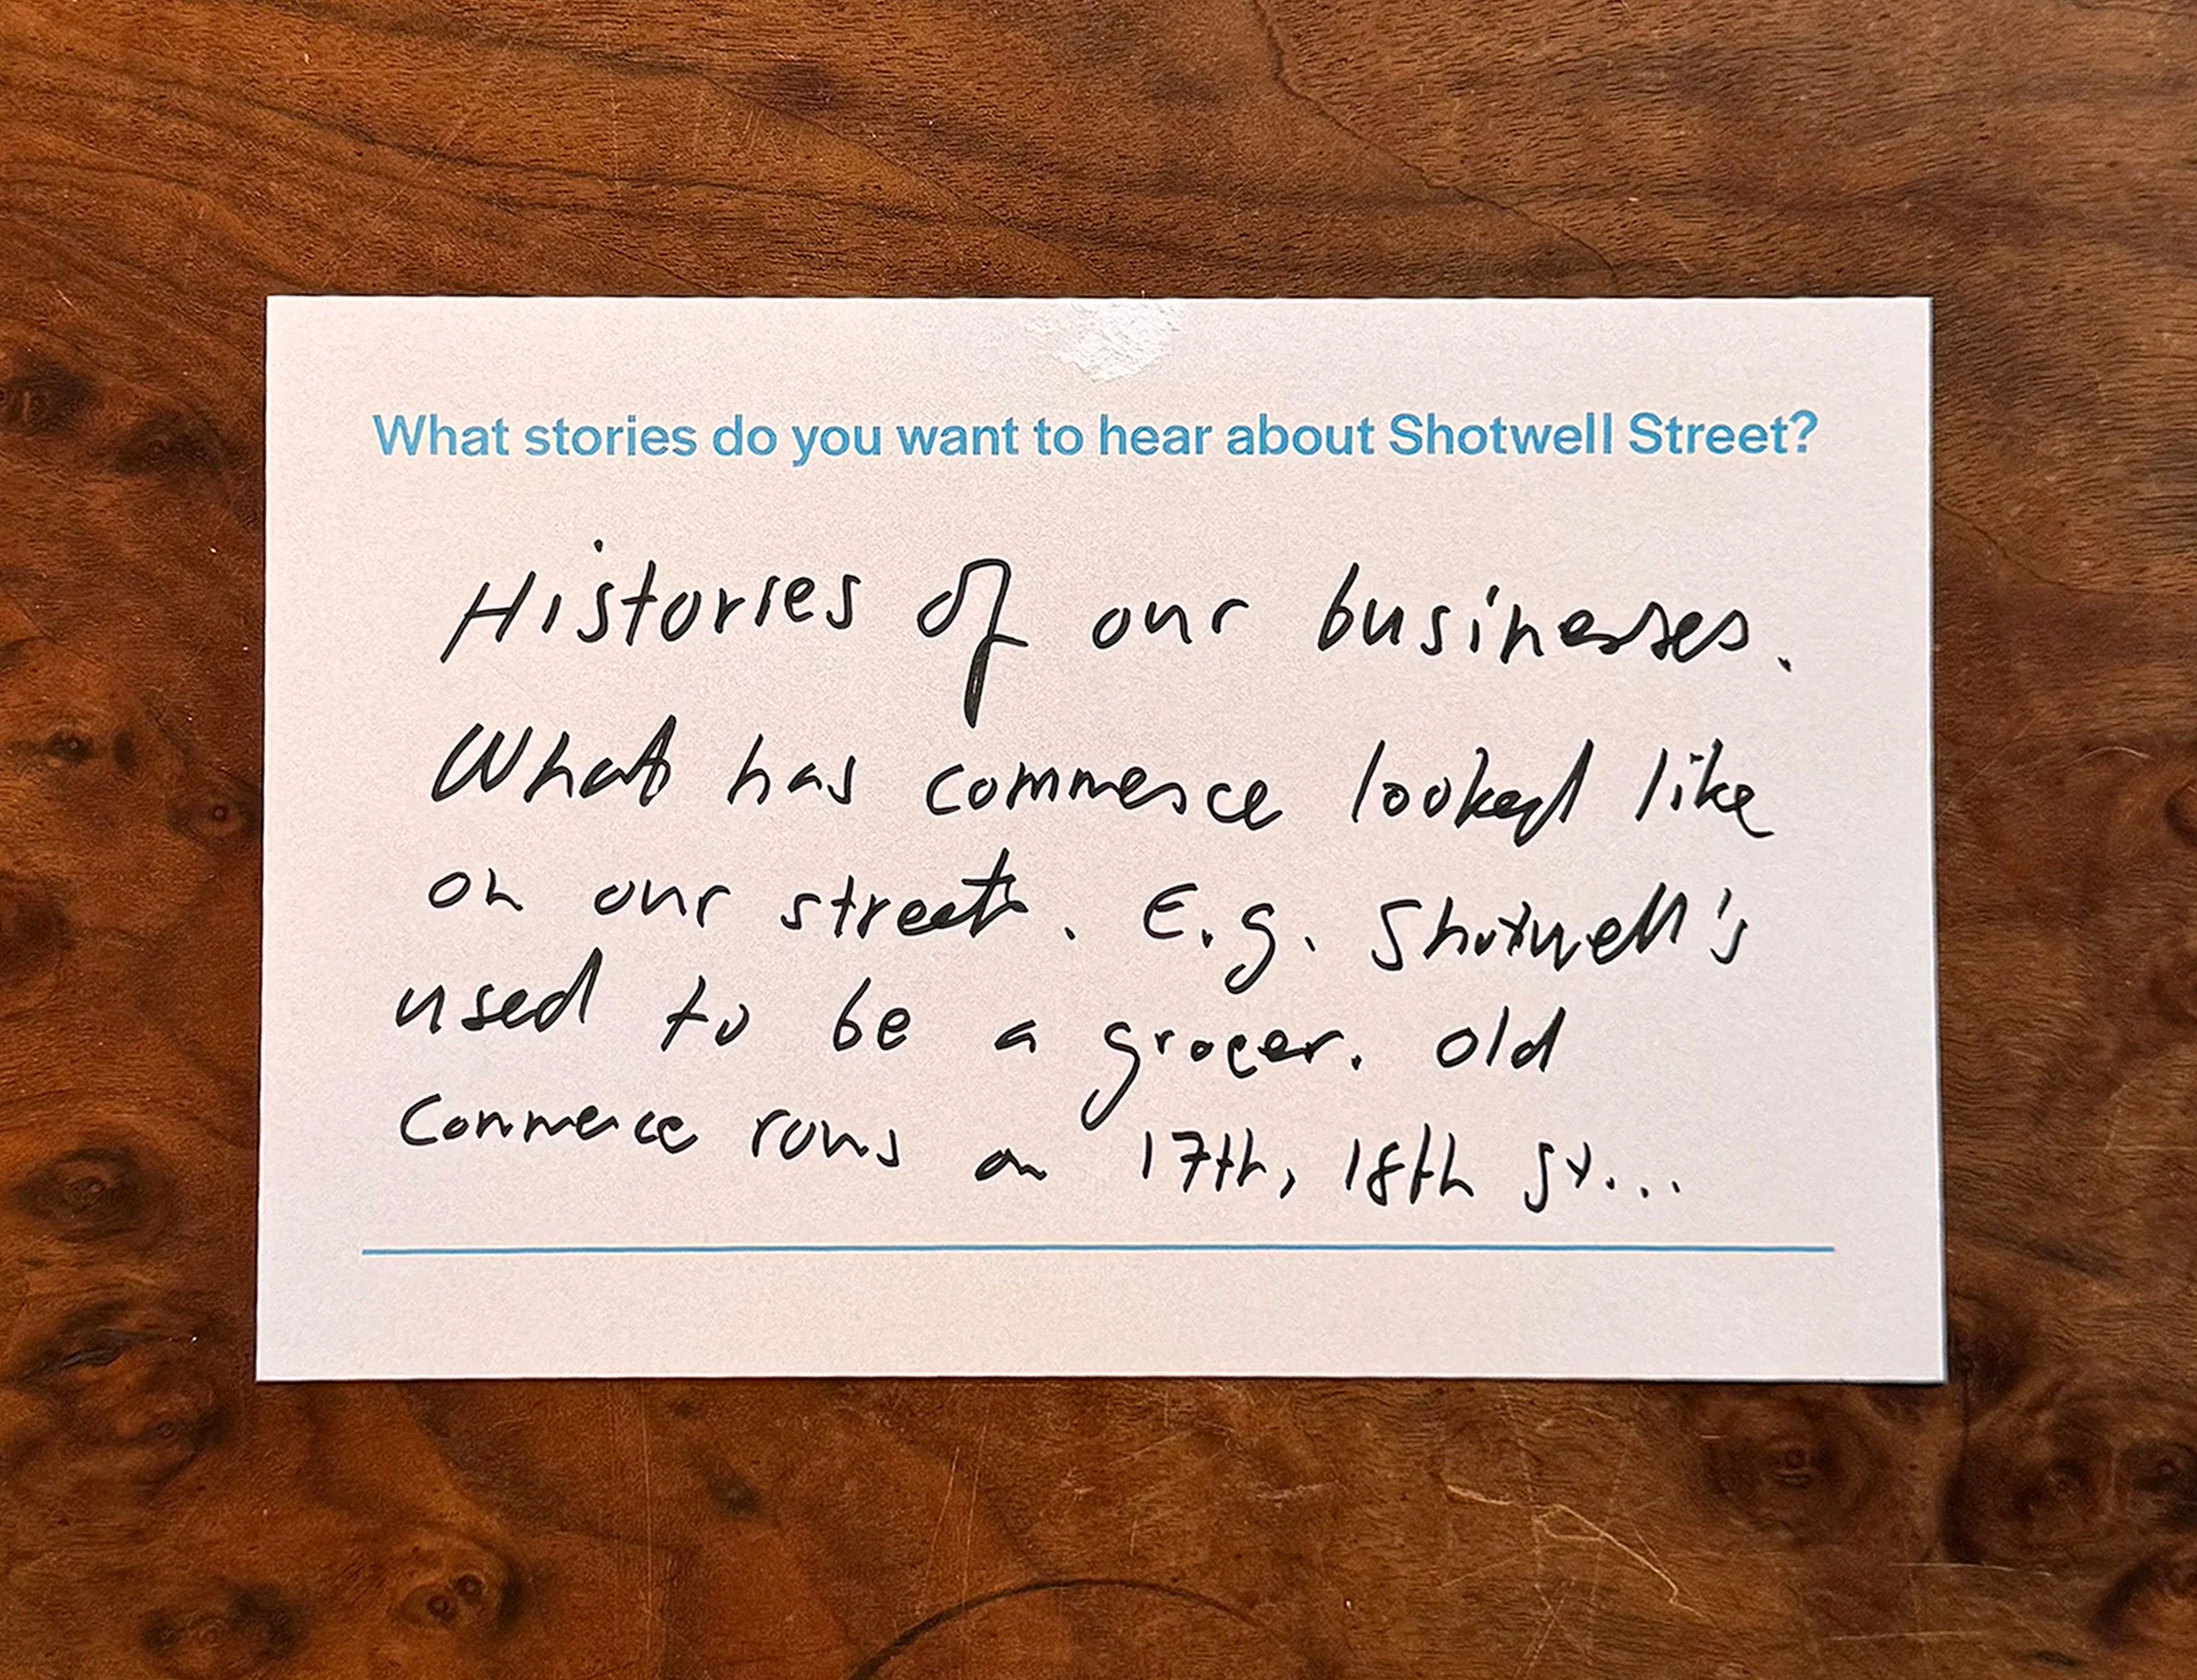 What stories do you want to hear about Shotwell Street?
Histories of our businesses.
What has commerce looked like
on our street. E.g. Shotwell's
used to be a grocer. Old
commerce rows on 17th, 18th St...